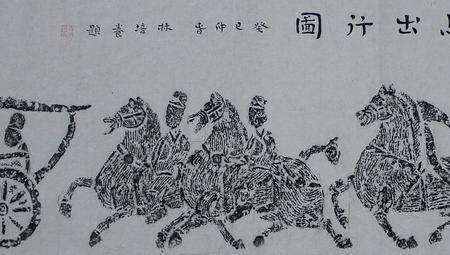 出行圖
癸巳仲春 林培養題